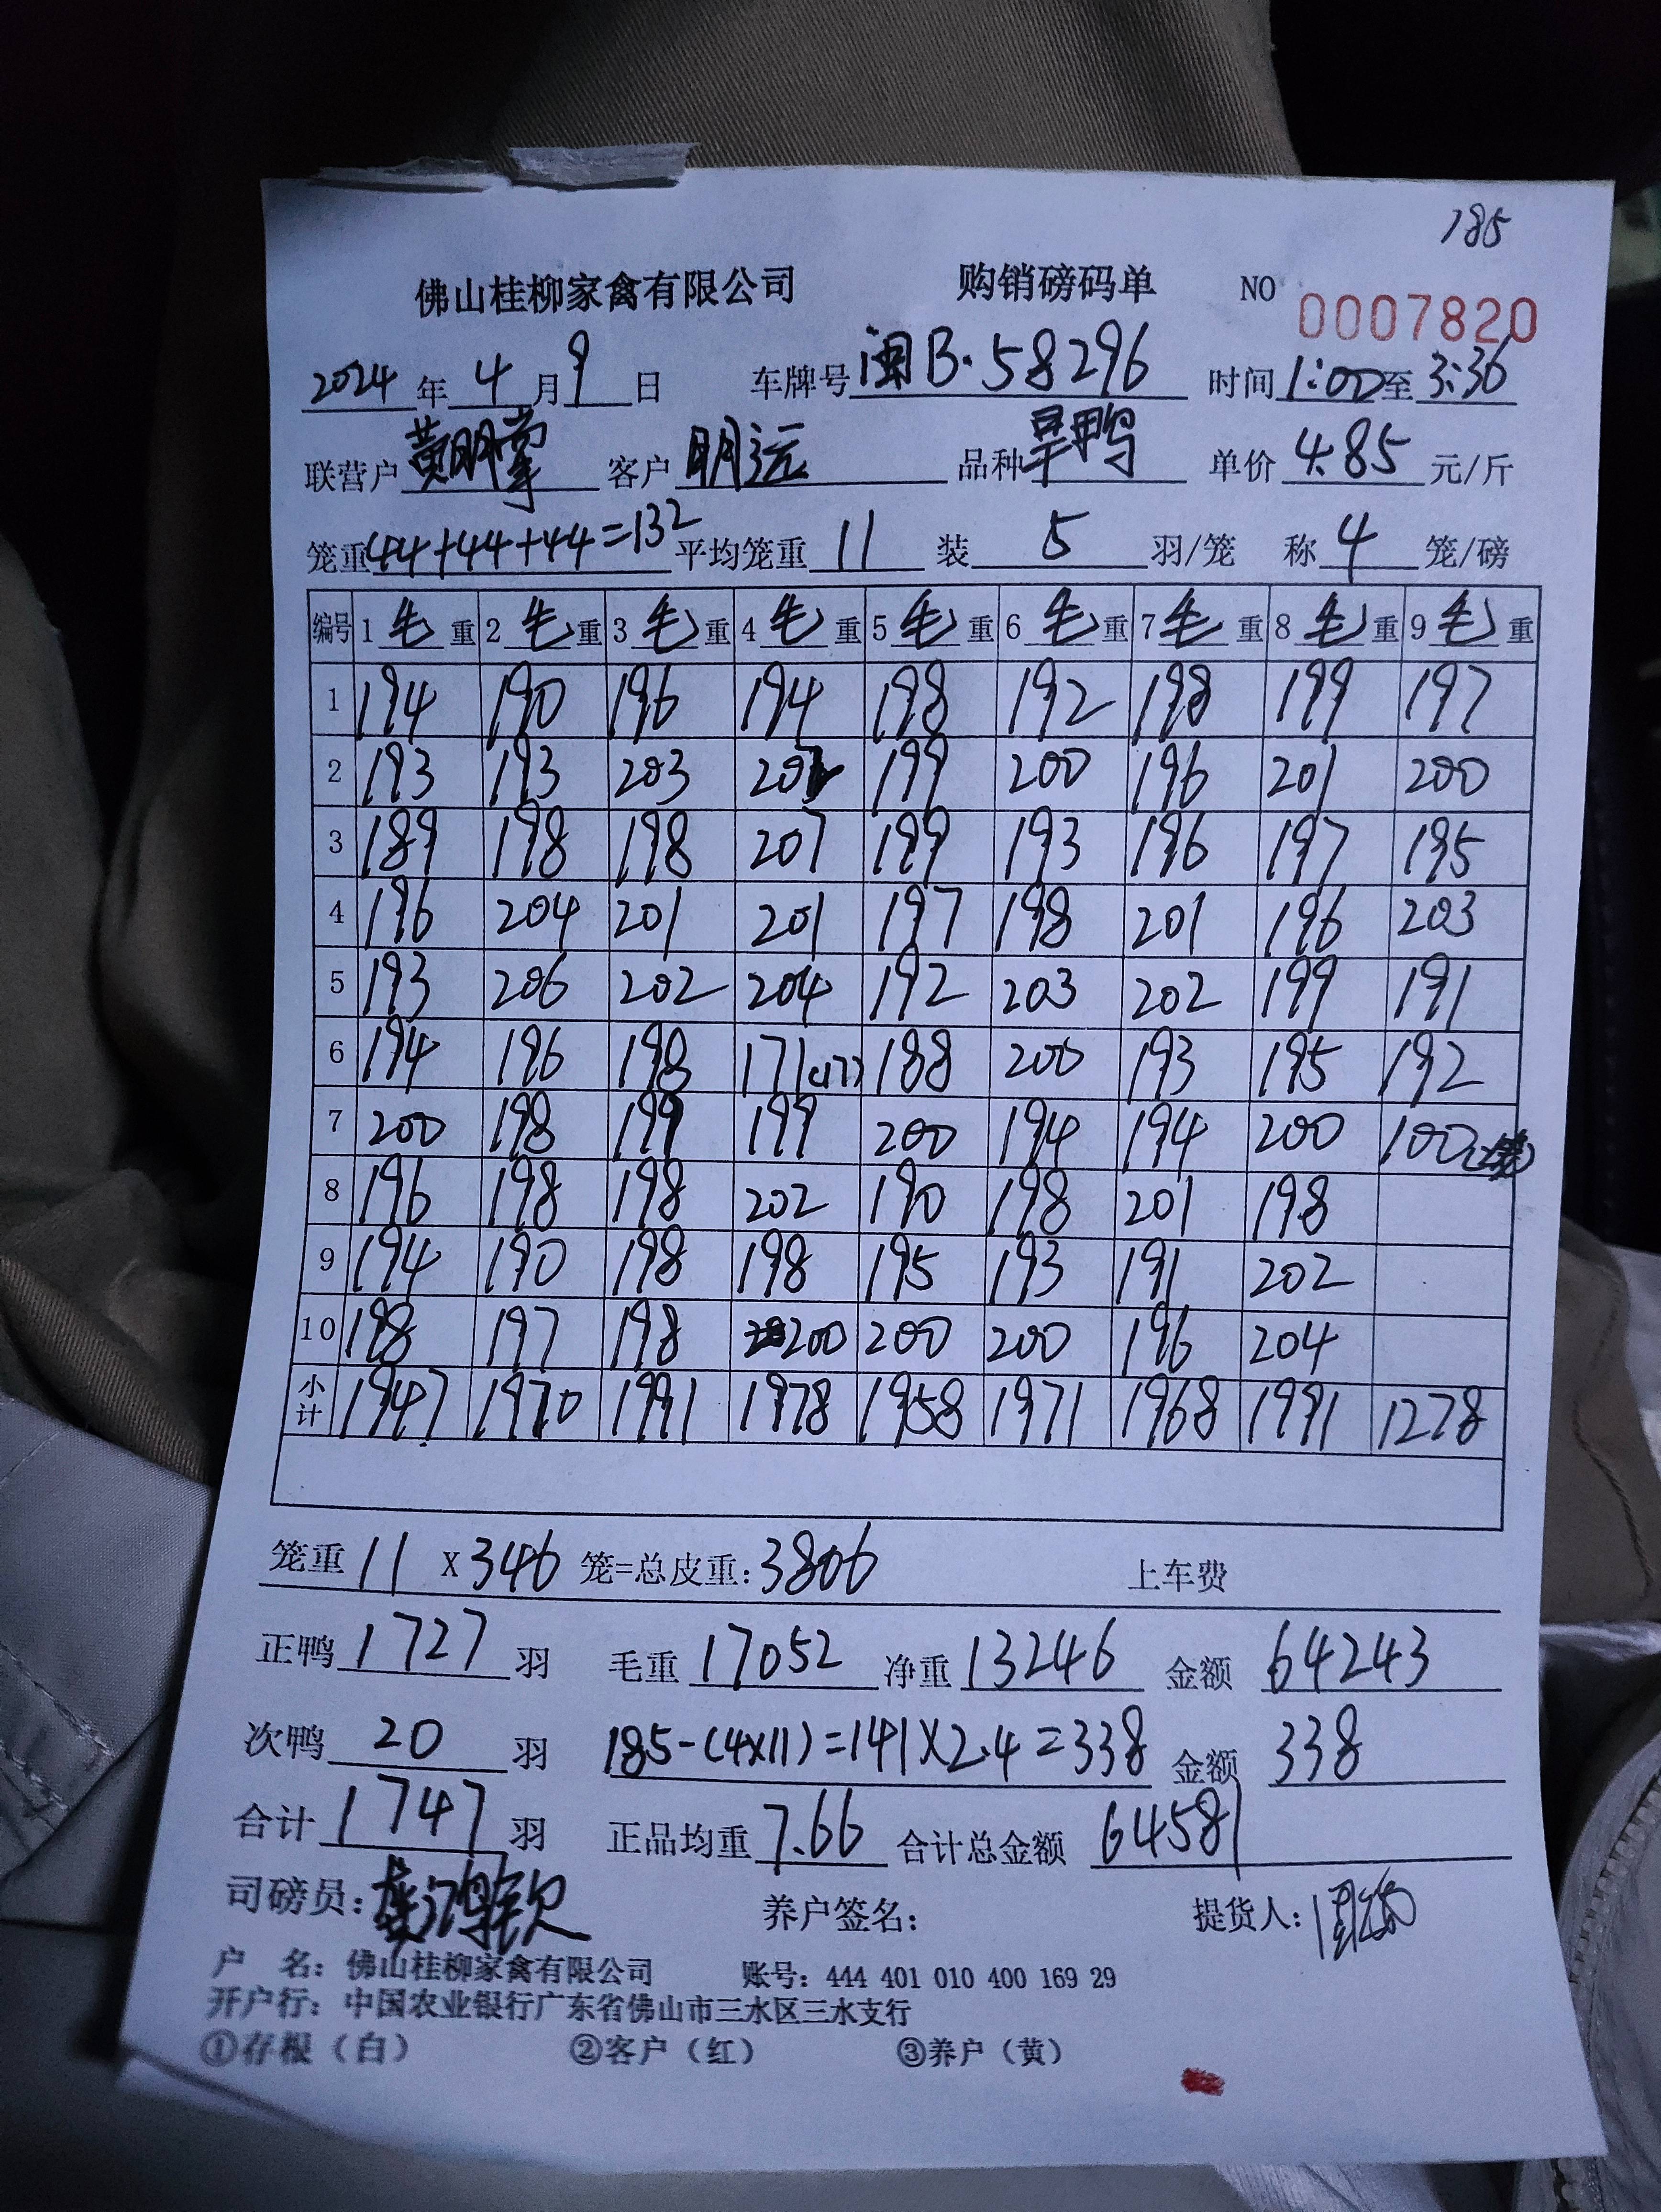 185
佛山桂柳家禽有限公司 购销磅码单 NO 0007820
2024 年 4 月 9 日 车牌号 闽B·58296 时间 1:00 至 3:36
联营户 黄明掌 客户 明远 品种 旱鸭 单价 4.85 元/斤
笼重 44+44+44=132 平均笼重 11 装 5 羽/笼 称 4 笼/磅
编号 1 毛 重 2 毛 重 3 毛 重 4 毛 重 5 毛 重 6 毛 重 7 毛 重 8 毛 重 9 毛 重
1 194 190 196 194 198 192 198 199 197
2 193 193 203 199 200 196 201 200
3 189 198 198 207 199 193 196 197 195
4 196 204 201 201 197 198 201 196 203
5 193 206 202 204 192 203 202 199 191
6 194 196 198 171(17) 188 200 193 195 192
7 200 198 199 199 200 194 194 200 100
8 196 198 198 202 190 198 201 198
9 194 190 198 198 195 193 191 202
10 198 197 198 200 200 200 196 204
小计 1947 1970 1991 1978 1958 1971 1968 1991 1278
笼重 11 X 346 笼=总皮重: 3806 上车费
正鸭 1727 羽 毛重 17052 净重 13246 金额 64243
次鸭 20 羽 185-(4x11)=141X2.4=338 金额 338
合计 1747 羽 正品均重 7.66 合计总金额 64581
司磅员: 养户签名: 提货人:
户 名: 佛山桂柳家禽有限公司 账号: 444 401 010 400 169 29
开户行: 中国农业银行广东省佛山市三水区三水支行
①存根（白） ②客户（红） ③养户（黄）